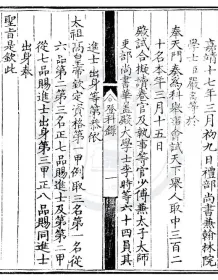 嘉靖十七年三月初九日禮部尚書兼翰林院
學士臣嚴嵩等於
奉天門奏為科舉事會試天下舉人取中三百二
十名本年三月十五日
殿試合擬讀卷官及執事等官少傅兼太子太師
吏部尚書華蓋殿大學士李時等六十四員其
科錄
進士出身等第恭依
太祖高皇帝欽定資格第一甲例取三名第一名從
六品第二第三名正七品賜進士及第第二甲
從七品賜進士出身第三甲正八品賜同進士
出身奏
聖旨是欽此